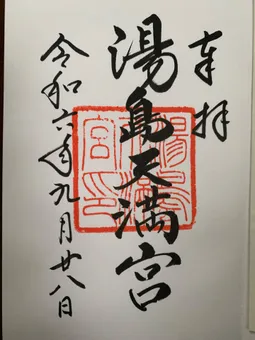 奉拝
湯島天満宮
令和六年九月廿八日